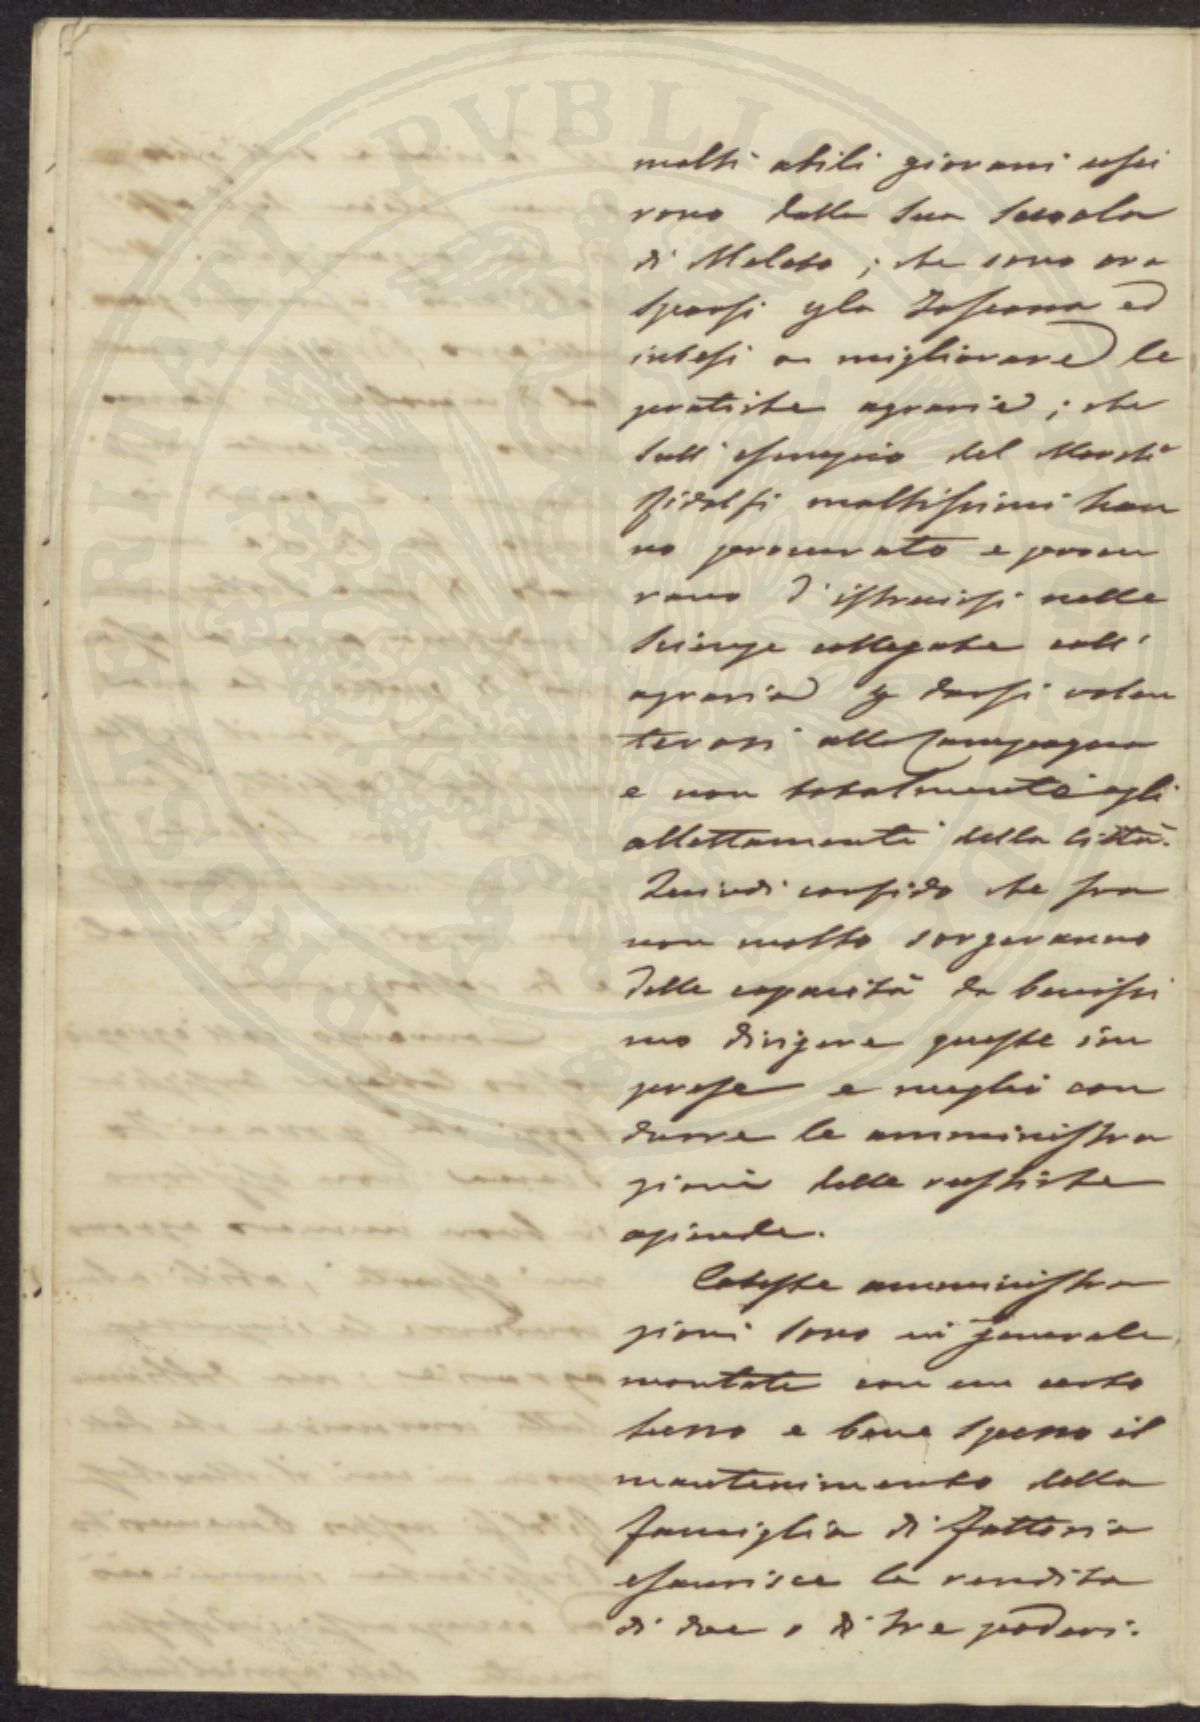 PROSPERITATI PUBLICAE
molti abili giovani usci
rono dalla sua Scuola
di Meleto; che sono ora
sparsi p la Toscana ed
intesi a migliorare le
pratiche agrarie; che
sull'esempio del March.
Ridolfi moltissimi han
no procurato e procu
rano d'istruirsi nelle
Scienze collegate coll'
agraria p darsi volen
terosi alla Campagna
e non totalmente agli
allettamenti della Città.
Quindi confido che fra
non molto sorgeranno
delle capacità da benissi
mo dirigere queste im
prese e meglio con
durre le amministra
zioni delle rustiche
aziende.
Coteste amministra
zioni sono in generale
montate con un certo
lusso e bene spesso il
mantenimento della
famiglia di fattoria
esaurisce la rendita
di due o di tre poderi.